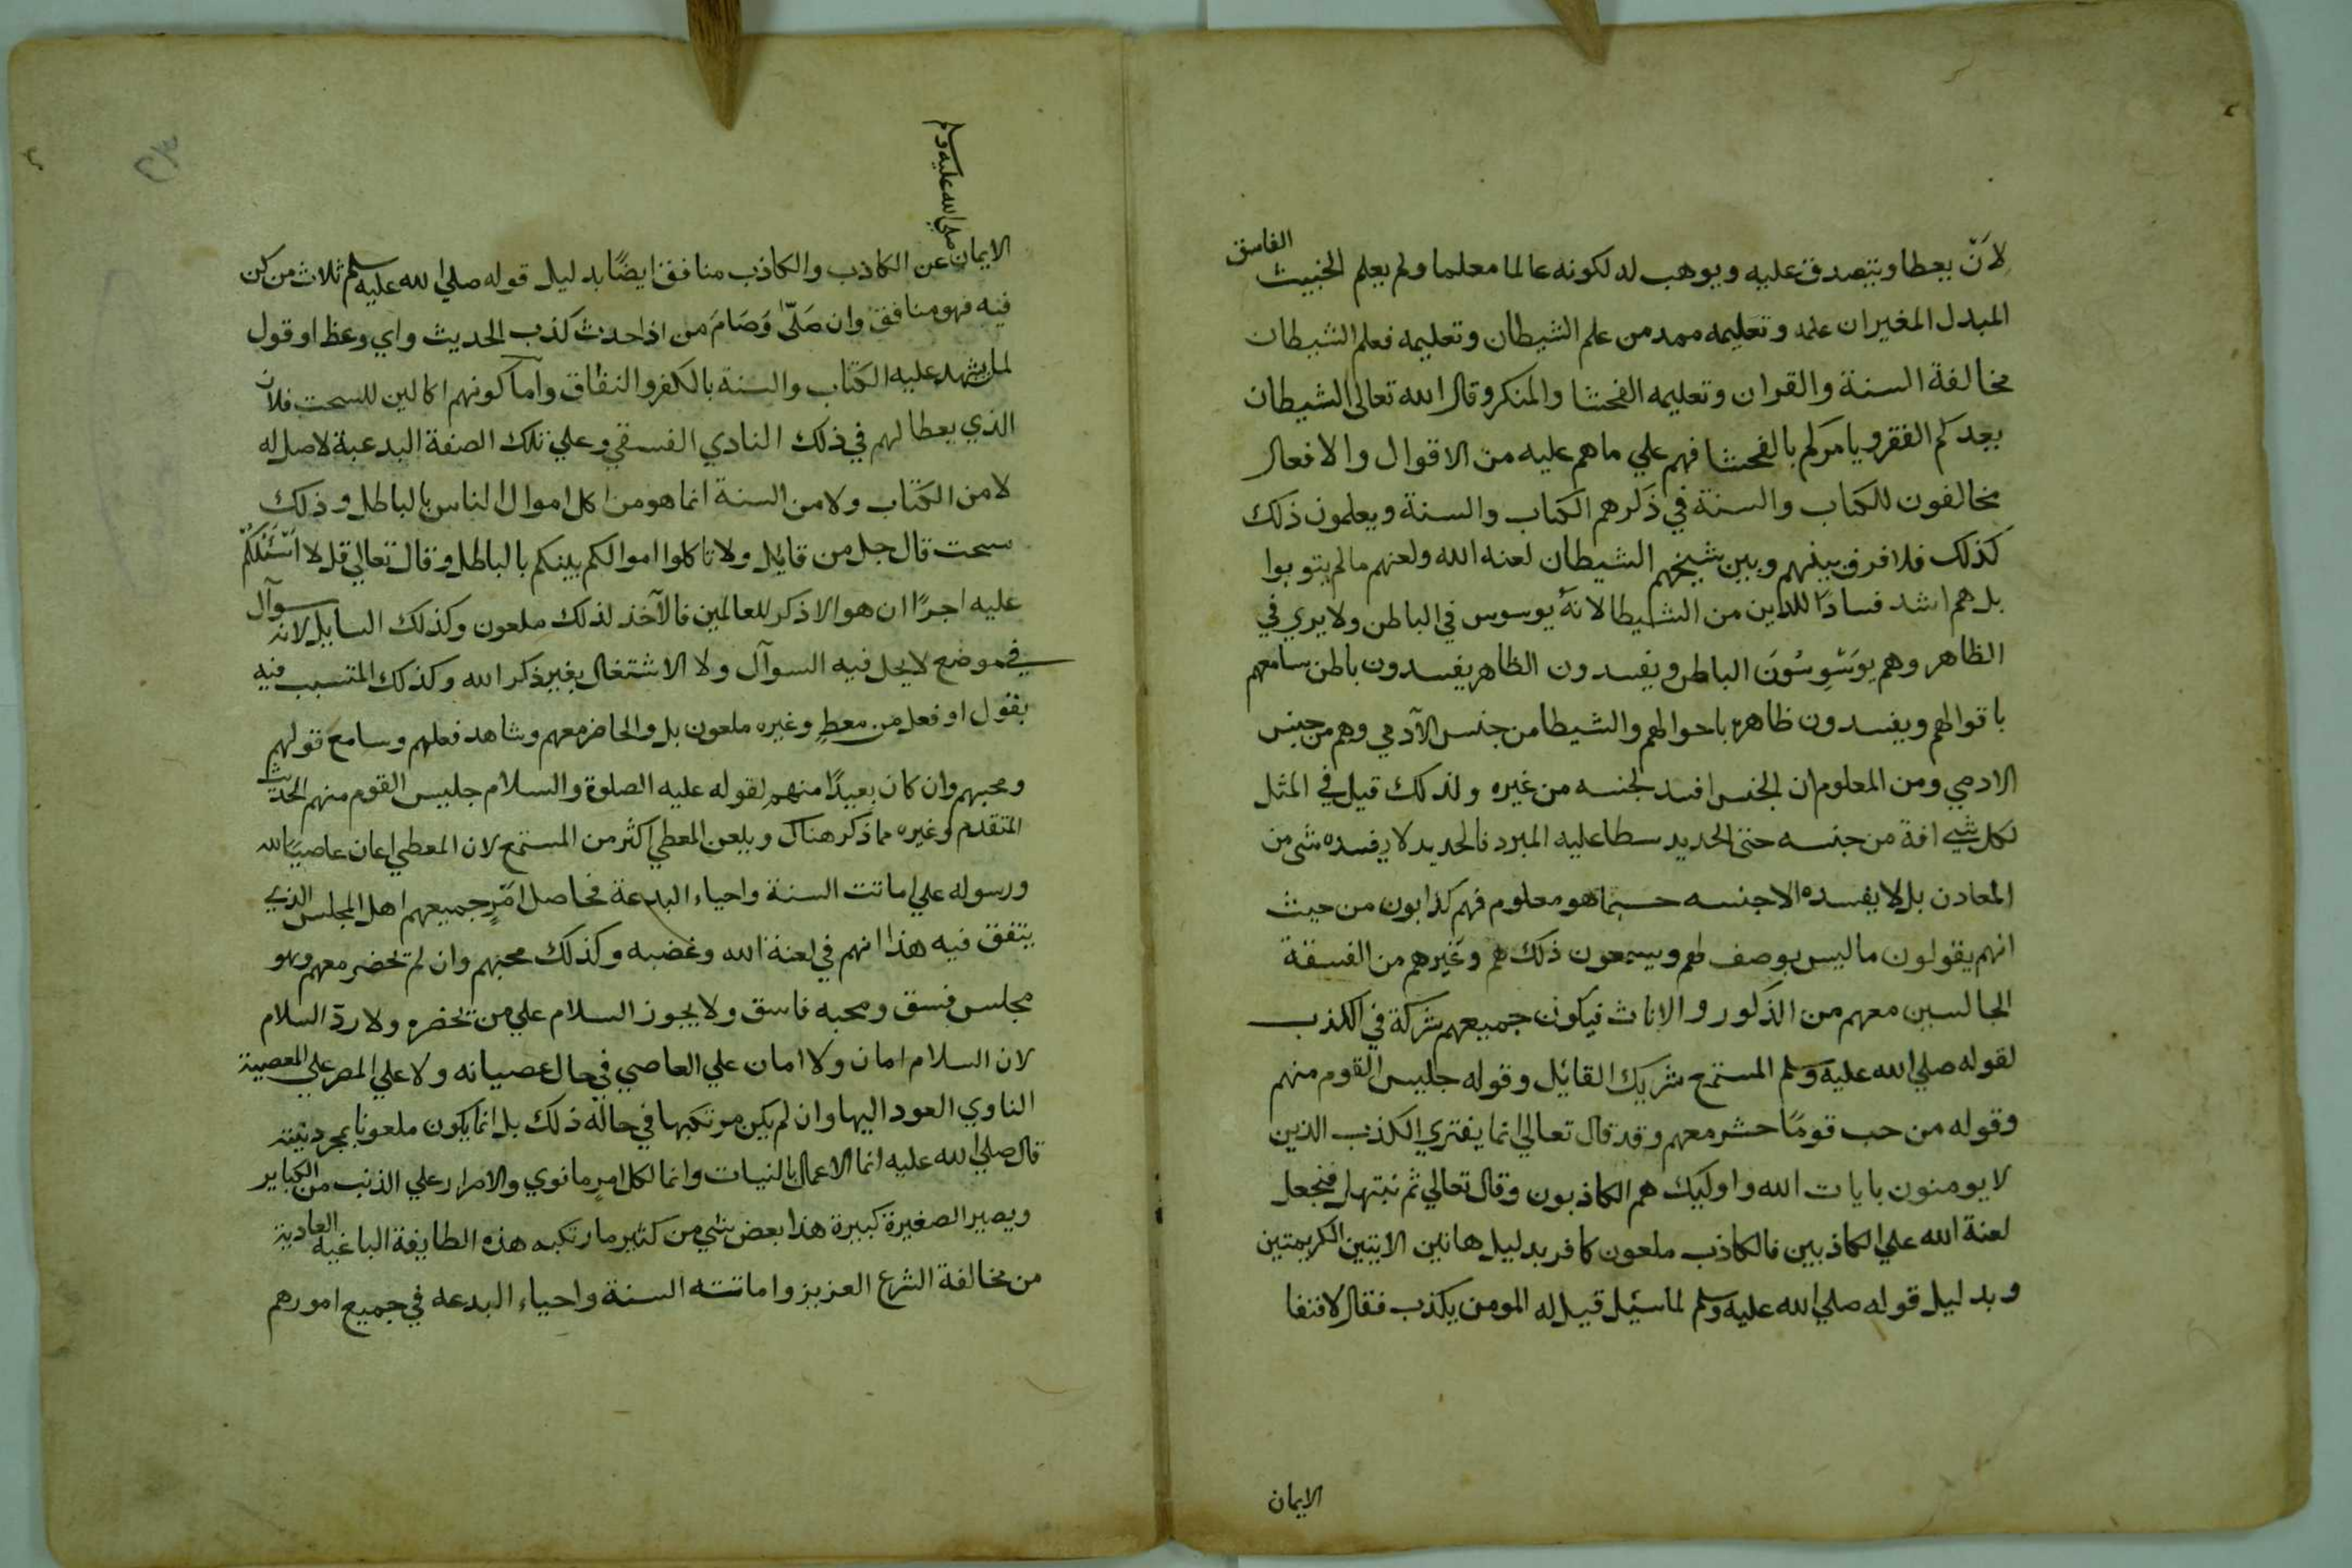 لانّ يعطا ويتصدق عليه ويوهب له لكونه عالما معلما ولم يعلم الخبيث الفاسق
المبدل المغير ان علمه وتعليمه ممد من علم الشيطان وتعليمه فعلم الشيطان
مخالفة السنة والقران وتعليمه الفحشا والمنكر وقال الله تعالى الشيطان
يعدكم الفقر ويامركم بالفحشا فهم علي ماهم عليه من الاقوال والافعال
مخالفون للكتاب والسنة في ذكرهم الكتاب والسنة ويعلمون ذلك
كذلك فلا فرق بينهم وبين شيخهم الشيطان لعنه الله ولعنهم مالم يتوبوا
بل هم اشد فسادًا للدين من الشيطا لانه يوسوس في الباطن ولا يري في
الظاهر وهم يوَسْوِسُونَ الباطن ويفسدون الظاهر يفسدون باطن سامعهم
باقوالهم ويفسدون ظاهره باحوالهم والشيطا من جنس الآدمي وهم من جنس
الادمي ومن المعلوم ان الجنس افسد لجنسه من غيره ولذلك قيل في المثل
لكل شيي افة من جنسه حتى الحديد سطا عليه المبرد فالحديد لا يفسده شي من
المعادن بل لا يفسده الا جنسه حسبما هو معلوم فهم كذابون من حيث
انهم يقولون ما ليس بوصف لهم ويسمعون ذلك هم وغيرهم من الفسقة
الجالسين معهم من الذكور والاناث فيكون جميعهم شركة في الكذب
لقوله صلي الله عليه وسلم المستمع شريك القائل وقوله جليس القوم منهم
وقوله من حب قومًا حشر معهم وقد قال تعالي انما يفتري الكذب الذين
لا يومنون بايات الله واوليك هم الكاذبون وقال تعالي ثم نبتهل فنجعل
لعنة الله علي الكاذبين فالكاذب ملعون كافر بدليل هاتين الايتين الكريمتين
وبدليل قوله صلي الله عليه وسلم لما سئيل قيل له المومن يكذب فقال لا فنفا
الايمان
صلي الله عليه وسلم
الايمان عن الكاذب والكاذب منافق ايضًا بدليل قوله صلي الله عليه وسلم ثلاث من كن
فيه فهو منافق وان صَلّىٰ وَصَامَ من اذا حدث كذب الحديث واي وعظ او قول
لمن يشهد عليه الكتاب والسنة بالكفر والنفاق وأما كونهم اكالين للسحت فلان
الذي يعطا لهم في ذلك النادي الفسقي وعلي تلك الصفة البدعية لاصل له
لا من الكتاب ولا من السنة انما هو من اكل اموال الناس بالباطل وذلك
سحت قال جل من قائل ولا تاكلوا اموالكم بينكم بالباطل وقال تعالي قل لا اَسْئَلُكُمْ
عليه اجرًا ان هو الا ذكر للعالمين فالآخذ لذلك ملعون وكذلك السايل لانه سوآل
في موضع لا يحل فيه السوآل ولا الاشتغال بغير ذكر الله وكذلك المتسبب فيه
بقول او فعل من معطٍ وغيره ملعون بل والحاضر معهم وشاهد فعلهم وسامع قولهم
ومحبهم وان كان بعيدًا منهم لقوله عليه الصلوة والسلام جليس القوم منهم الحديث
المتقدم وغيره مما ذكر هناك ويلعن المعطي اكثر من المستمع لان المعطي اعان عاصيًا لله
ورسوله علي اماتت السنة واحياء البدعة فحاصل امر جميعهم اهل المجلس الذي
يتفق فيه هذا انهم في لعنة الله وغضبه وكذلك محبهم وان لم تحضر معهم وهو
مجلس فسق ومحبه فاسق ولا يجوز السلام علي من تحضره ولا ردّ السلام
لان السلام امان ولا امان علي العاصي في حال عصيانه ولا علي المصر علي المعصية
الناوي العود اليها وان لم يكن مرتكبها في حالة ذلك بل انما يكون ملعونا بمجرد نيته
قال صلي الله عليه انما الاعمال بالنيات وانما لكل امرٍ ما نوي والاصرار علي الذنب من الكباير
ويصير الصغيرة كبيرة هذا بعض شي من كثير ما ارتكبه هذه الطايفة الباغية العادية
من مخالفة الشرع العزيز واماتته السنة واحياء البدعه في جميع امورهم